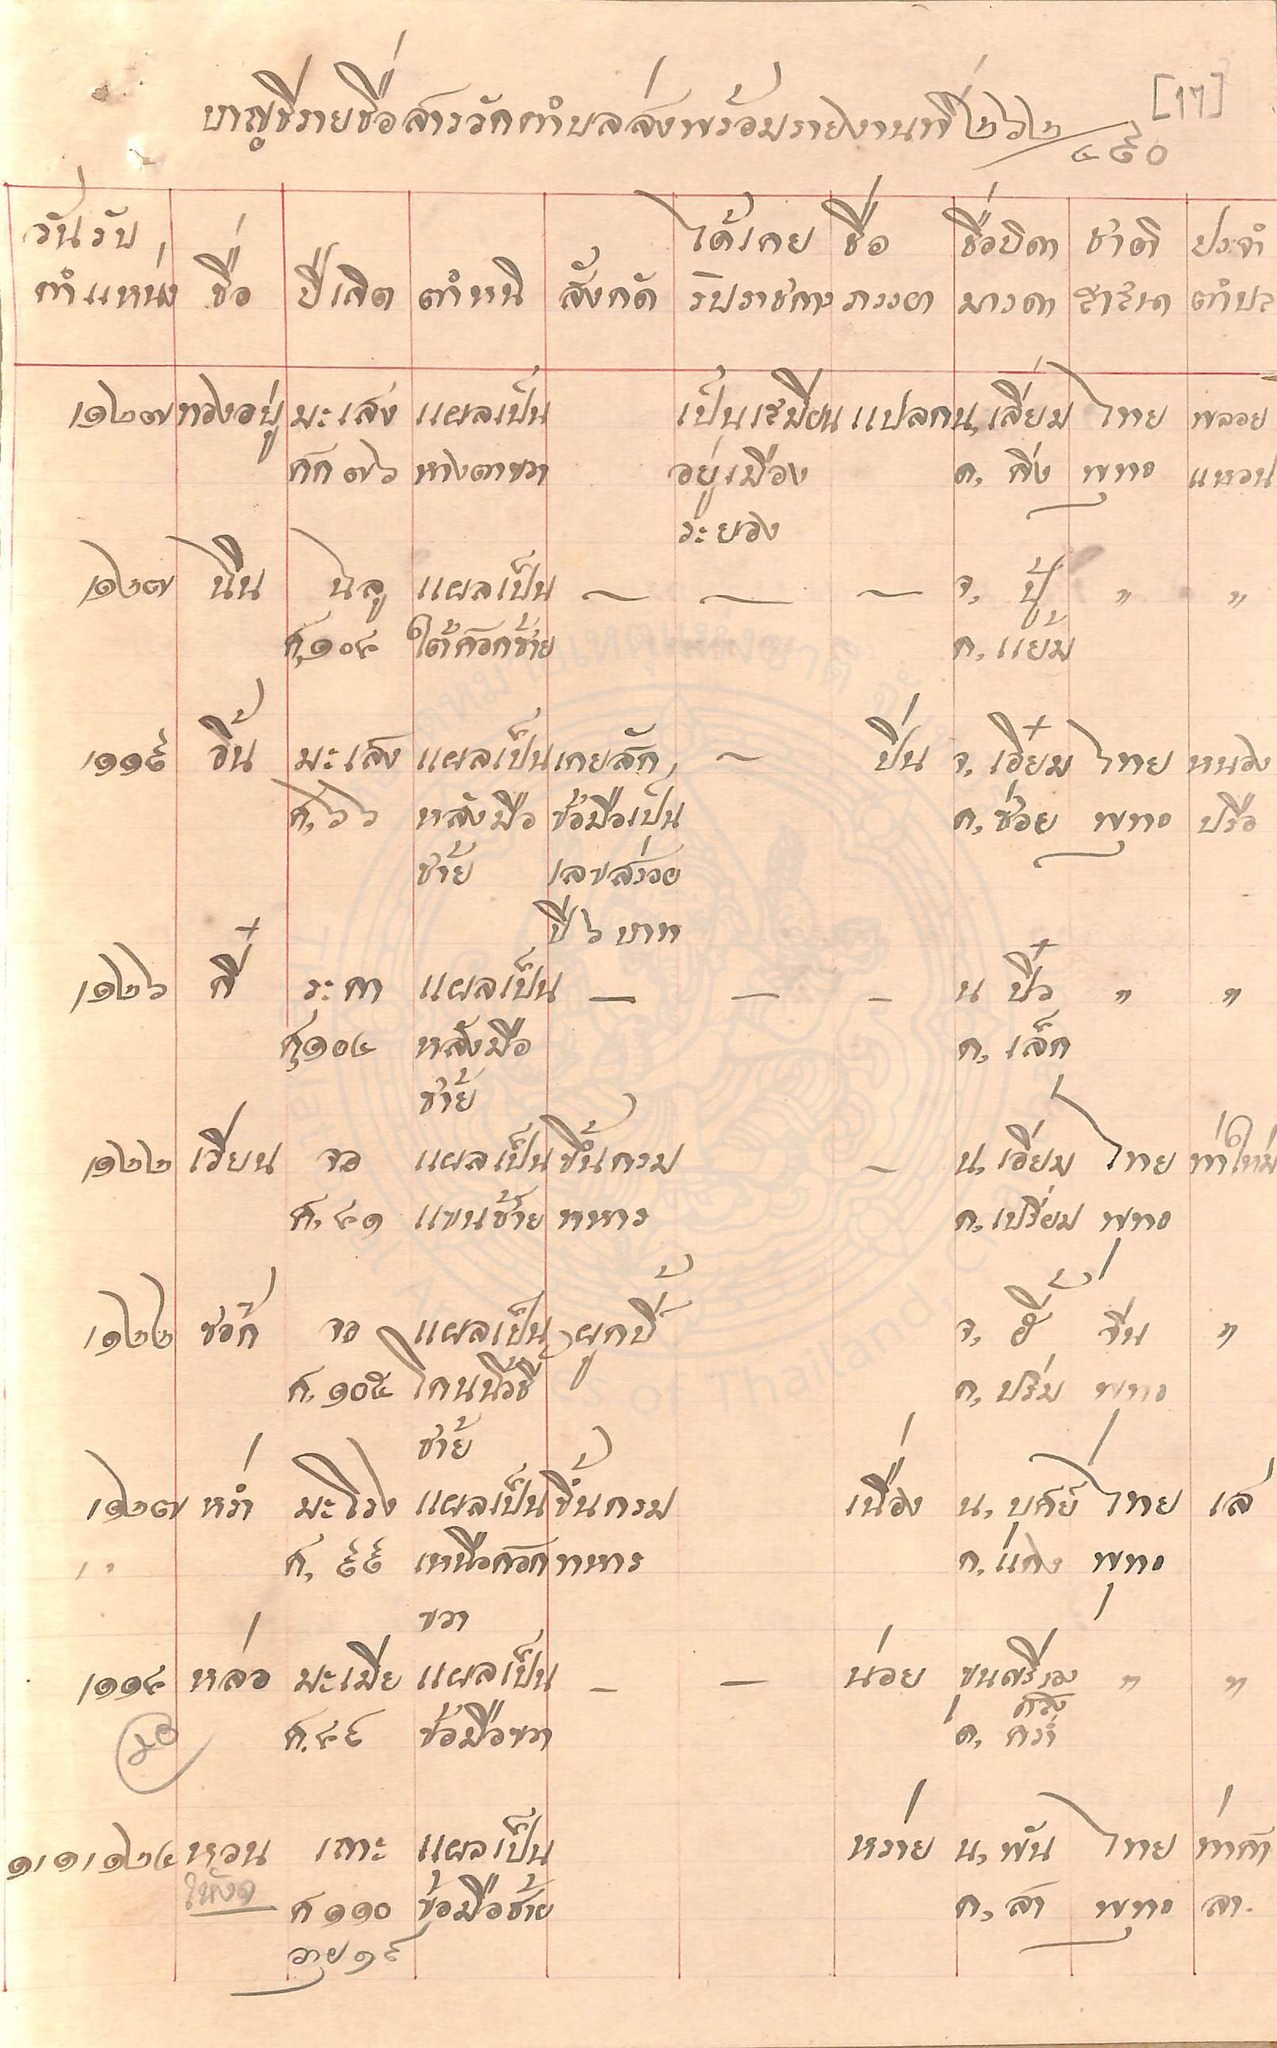 [๑๗]
บาญชีรายชื่อสารวัดตำบลส่งพร้อมรายงานที่ ๒๖๒/๔๕๐
วันรับ ได้เคย ชื่อ ชื่อบิดา ชาติ ประจำ
ตำแหน่ง ชื่อ ปีเกิด ตำหนิ สังกัด รับราชการ ภรรยา มารดา สาสนา ตำบล
๑๒๗ ทองอยู่ มะเสง แผลเป็น เป็นเสมียน แปลก น, เสี่ยม ไทย พลอย
ศก ๗๖ หางตาขวา อยู่เมือง ด, กิ่ง พุทธ แหวน
ระยอง
๑๒๗ นิ่น ฉลู แผลเป็น — — — จ, ปู้ " "
ศ, ๑๐๔ ใต้ศอกซ้าย ด, แย้ม
๑๑๕ อิ้น มะเสง แผลเป็น เคยสัก — ปิ่น จ, เอี่ยม ไทย หนอง
ศ, ๖๖ หลังมือ ข้อมือเป็น ด, ช่อย พุทธ ปรือ
ซ้าย เลขส่วย
ปี ๖ บาท
๑๒๖ กี่ ระกา แผลเป็น — — — น ปิ๋ว " "
ศ, ๑๐๔ หลังมือ ด, เล็ก
ซ้าย
๑๒๒ เรียน จอ แผลเป็น ขึ้นกรม — น, เอี่ยม ไทย ท่าใหม่
ศ, ๔๑ แขนซ้าย ทหาร ด, เปรี่ยม พุทธ
๑๒๒ ซอก๊ จอ แผลเป็น ผูกปี้ จ, ฮี้ จีน "
ศ, ๑๐๕ โคนนิ้วชี้ ด, ปริ่ม พุทธ
ซ้าย
๑๒๗ หร่ำ มะโรง แผลเป็น ขึ้นกรม เนื่อง น, บุศย์ ไทย เส
" ศ, ๕๕ เหนือศอก ทหาร ด, แดง พุทธ
ขวา
๑๑๔ หล่อ มะเมีย แผลเป็น — — น่อย ขุนศรีรอง " "
ศ, ๔๕ ข้อมือขวา ด,
๑,๑,๑๒๔ หวน เถาะ แผลเป็น หว่าย น, พัน ไทย ท่าศา
ให้งด ศ ๑๑๐ ข้อมือซ้าย ด, ลา พุทธ ลา.
อายุ ๑๕